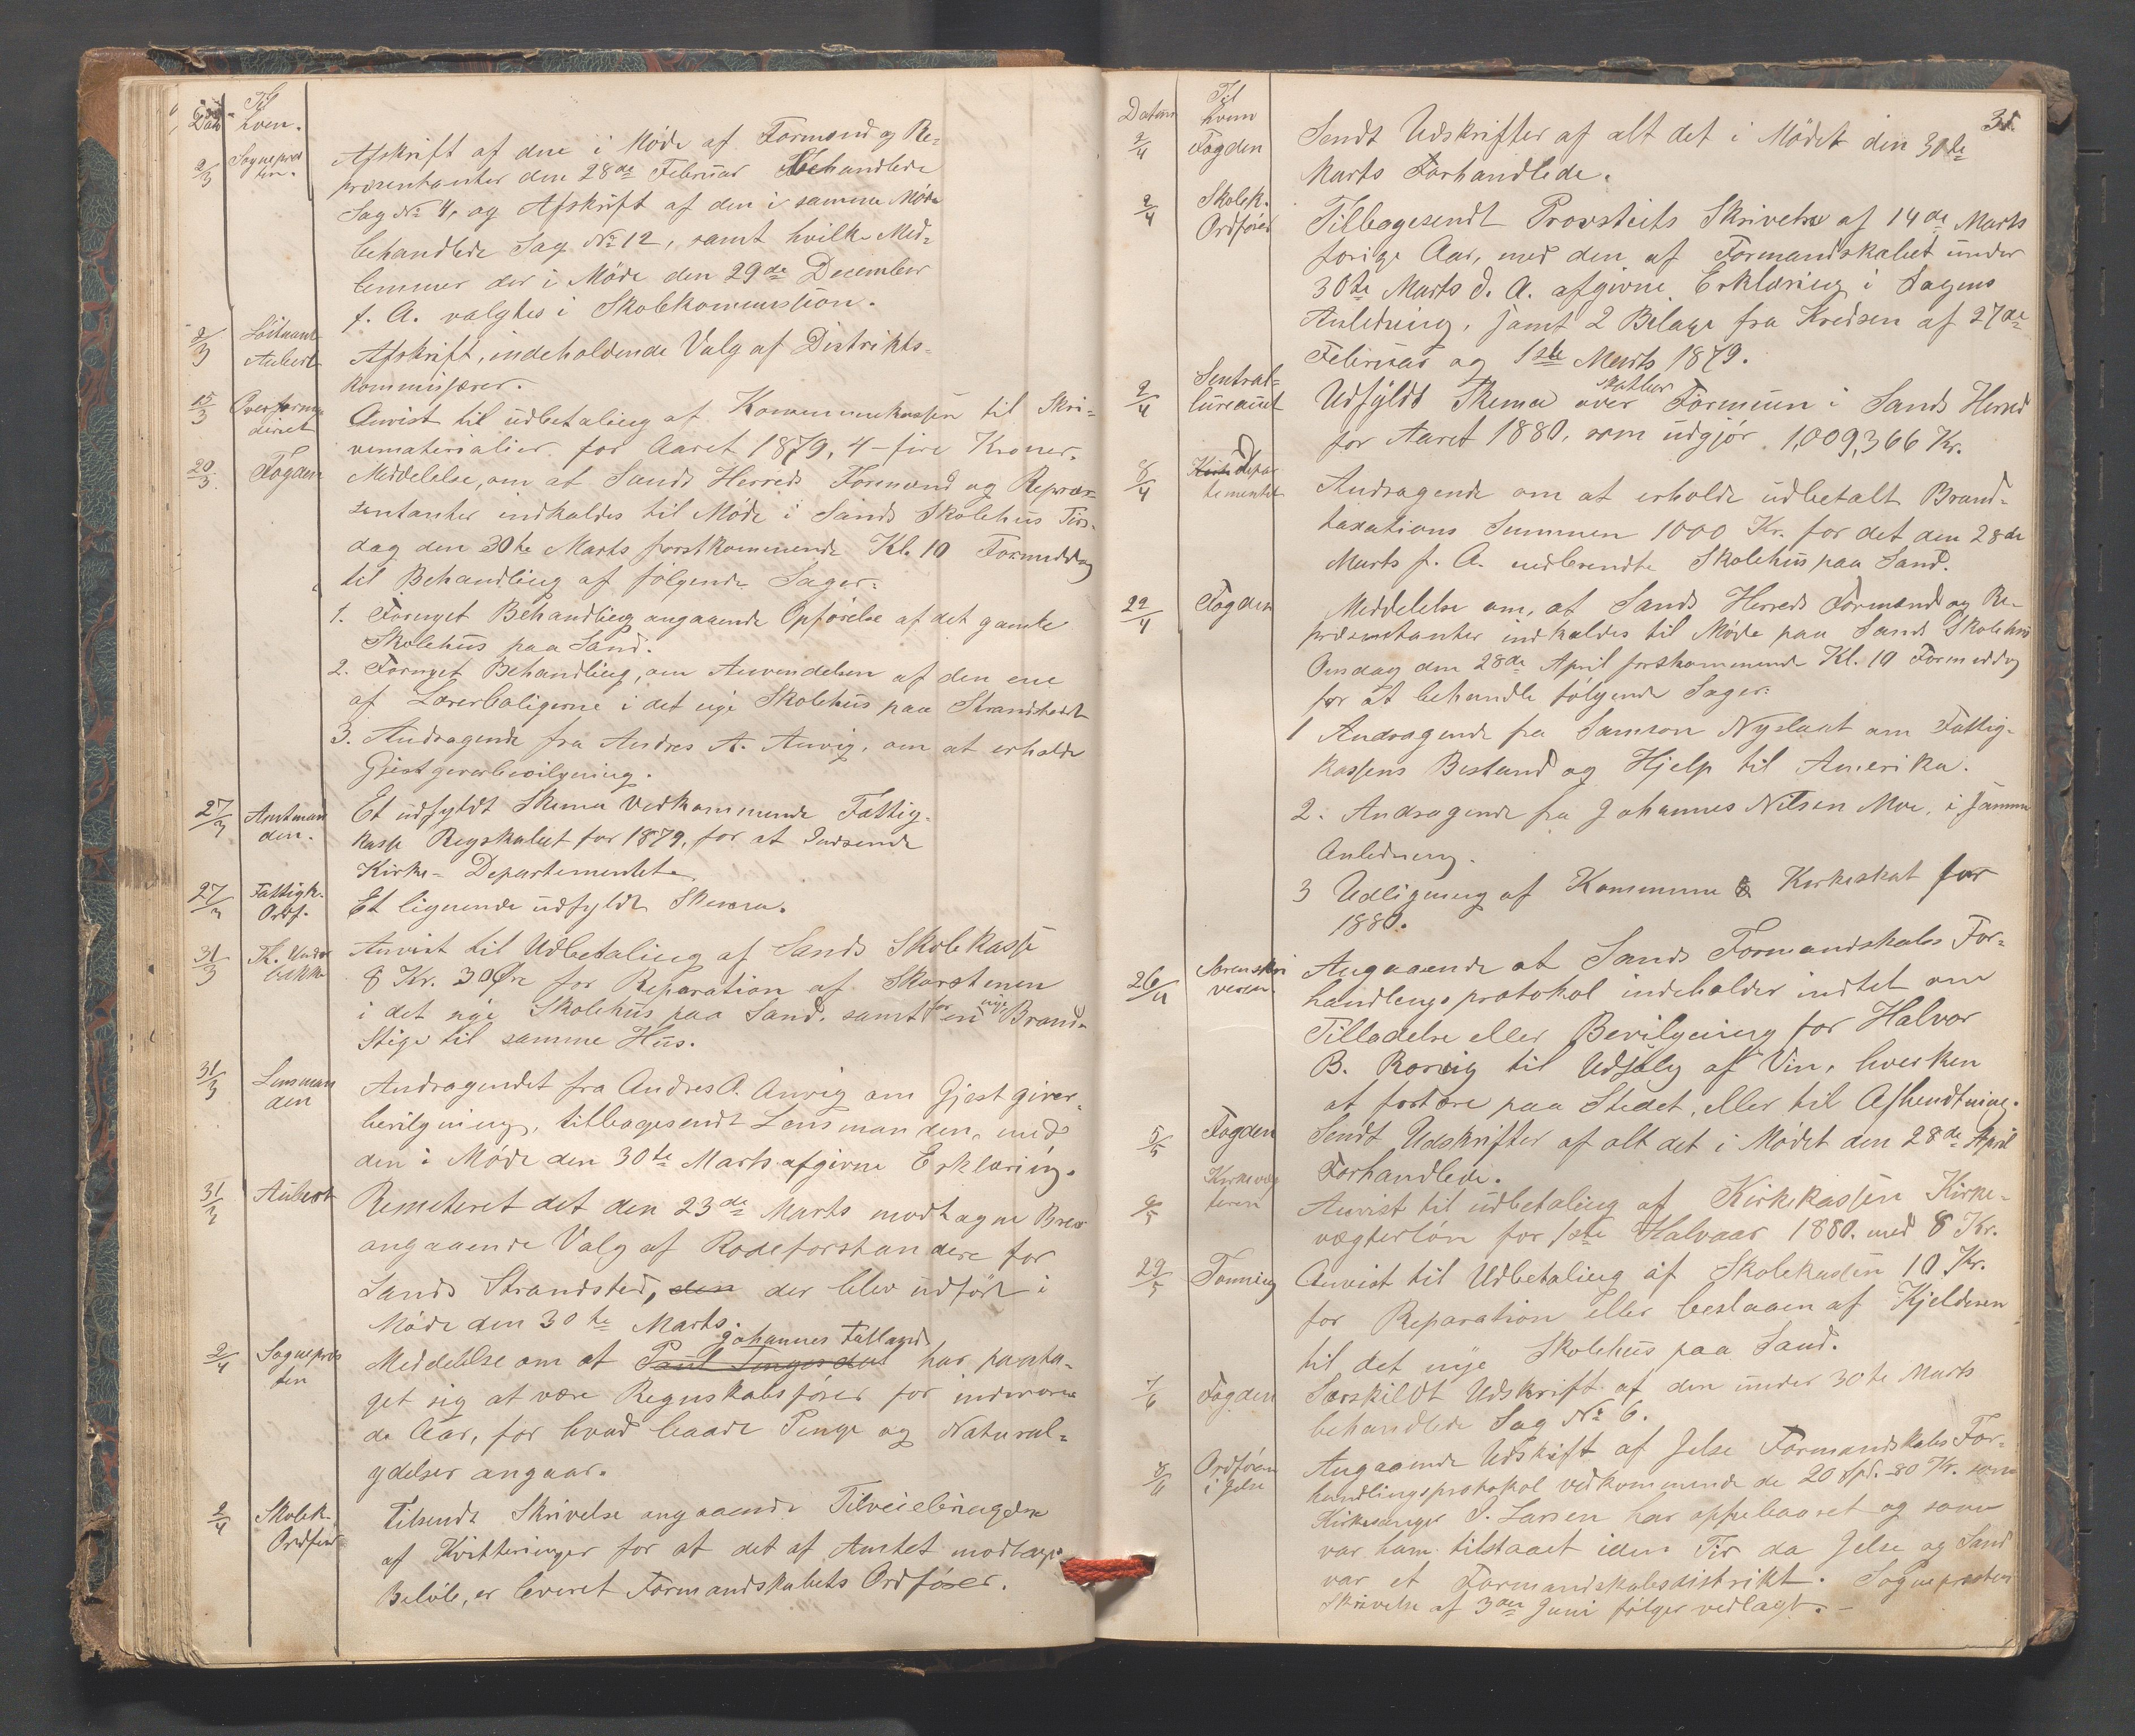 Dato
Til
hvem.
2/3 Sognepres
ten.
Afskrift af den i Møde af Formænd og Re-
præsentanter den 28de Februar behandlede
Sag No 4, og Afskrift af den i samme Møde
behandlede Sag No 12, samt hvilke Med-
lemmer der i Møde den 29de December
f. A. valgtes i Skolekommission.
2/3 Löitnant
Aubert
Afskrift, indeholdende Valg af Distrikts-
kommissærer.
15/3 Overformyn
deriet
Anvist til udbetaling af Kommunekassen til Skri-
vematerialier for Aaret 1879, 4 - fire Kroner.
20/3 Fogden
Meddelelse, om at Sands Herreds Formænd og Repræ-
sentanter indkaldes til Møde i Sands Skolehus Tirs-
dag den 30te Marts førstkommende Kl. 10 Formiddag
til Behandling af følgende Sager:
1. Fornyet Behandling angaaende Opførelse af det gamle
Skolehus paa Sand.
2. Fornyet Behandling, om Anvendelsen af den ene
af Lærerboligerne i det nye Skolehus paa Strandstedet
3. Andragende fra Andres A. Anvig, om at erholde
Gjestgiverbevilgning.
27/3 Amtman
den.
Et udfyldt Skema vedkommende Fattig-
kasse Regskabet for 1879, for at Indsende
Kirke-Departementet.
27/3 Fattigk.
Ordf.
Et lignende udfyldt Skema.
31/3 Th. Under
bakke
Anvist til Udbetaling af Sands Skolekasse
8 Kr. 30 Øre for Reparation af Skorstenen
i det nye Skolehus paa Sand, samt for en nye Brand-
Stige til samme Hus.
31/3 Lensman
den
Andragendet fra Andres A. Anvig om Gjestgiver-
bevilgning, tilbagesendt Lensmanden, med
den i Møde den 30te Marts afgivne Erklæring.
31/3 Aubert
Remeteret det den 23de Marts modtagne Brev
angaaende Valg af Rodeforstandere for
Sands Strandsted, den der blev udført i
Møde den 30te Marts.
2/4 Sognepres
ten
Johannes Fatland
Meddelelse om at har paata-
get sig at være Regnskabsfører for indeværen
de Aar, for hvad baade Penge og Natural-
ydelser angaar.
2/4 Skolek.
Ordfører
Tilsendt Skrivelse angaaende Tilveiebringelse
af Kvitteringer for at det af Amtet modtagne
Beløb, er leveret Formandskabets Ordfører.
31.
Datum
Til
hvem
2/4 Fogden
Sendt Udskrifter af alt det i Mødet den 30te
Marts Forhandlede.
2/4 Skolek.
Ordfører
Tilbagesendt Provstiets Skrivelse af 14de Marts
forige Aar, med den af Formandskabet under
30te Marts d. A. afgivne Erklæring i Sagens
Anledning, samt 2 Bilage fra Kredsen af 27de
Februar og 1ste Marts 1879.
2/4 Sentral-
bureauet
Udfyldt Skema over skatbar Formuen i Sands Herred
for Aaret 1880, som udgjør 1,009,366 Kr.
8/4 Kirkedepar
tementet
Andragende om at erholde udbetalt Brand-
taxations Summen 1000 Kr. for det den 28de
Marts f. A. nedbrendte Skolehus paa Sand.
22/4 Fogden
Meddelelse om, at Sands Herreds Formænd og Re-
præsentanter indkaldes til Møde paa Sands Skolehus
Onsdag den 28de April førstkommende Kl. 10 Formiddag
for at behandle følgende Sager:
1 Andragende fra Samson Nyslaat om Fattig-
kassens Bistand og Hjelp til Amerika.
2. Andragende fra Johannes Nilsen Moe, i samme
Anledning.
3 Udligning af Kommune & Kirkeskat for
1880.
26/4 Sorenskri
veren.
Angaaende at Sands Formandskabs For-
handlingsprotokol indeholder indtet om
Tilladelse eller Bevilgning for Halvor
B. Rorvig til Udsalg af Vin, hverken
at fortære paa Stedet, eller til Afhendtning.
5/5 Fogden
Sendt Udskrifter af alt det i Mødet den 28de April
Forhandlede.
9/5 Kirkevæg
teren
Anvist til udbetaling af Kirkekassen Kirke-
vægterløn for 1ste Halvaar 1880. med 8 Kr.
29/5 Tonning
Anvist til Udbetaling af Skolekassen 10 Kr.
for Reparation eller beslaaen af Kjelderen
til det nye Skolehus paa Sand.
7/6 Fogden
Særskildt Udskrift af den under 30te Marts
behandlede Sag No 6.
8/6 Ordføren
i Jelse
Angaaende Udskrift af Jelse Formandskabs For-
handlingsprotokol vedkommende de 20 Spd. - 80 Kr. som
Kirkesanger S. Larsen har oppebaaret og som
var ham tilstaaet iden Tid da Jelse og Sand
var et Formandskabsdistrikt. Sognepræsten
Skrivelse af 3die Juni følger vedlagt. -